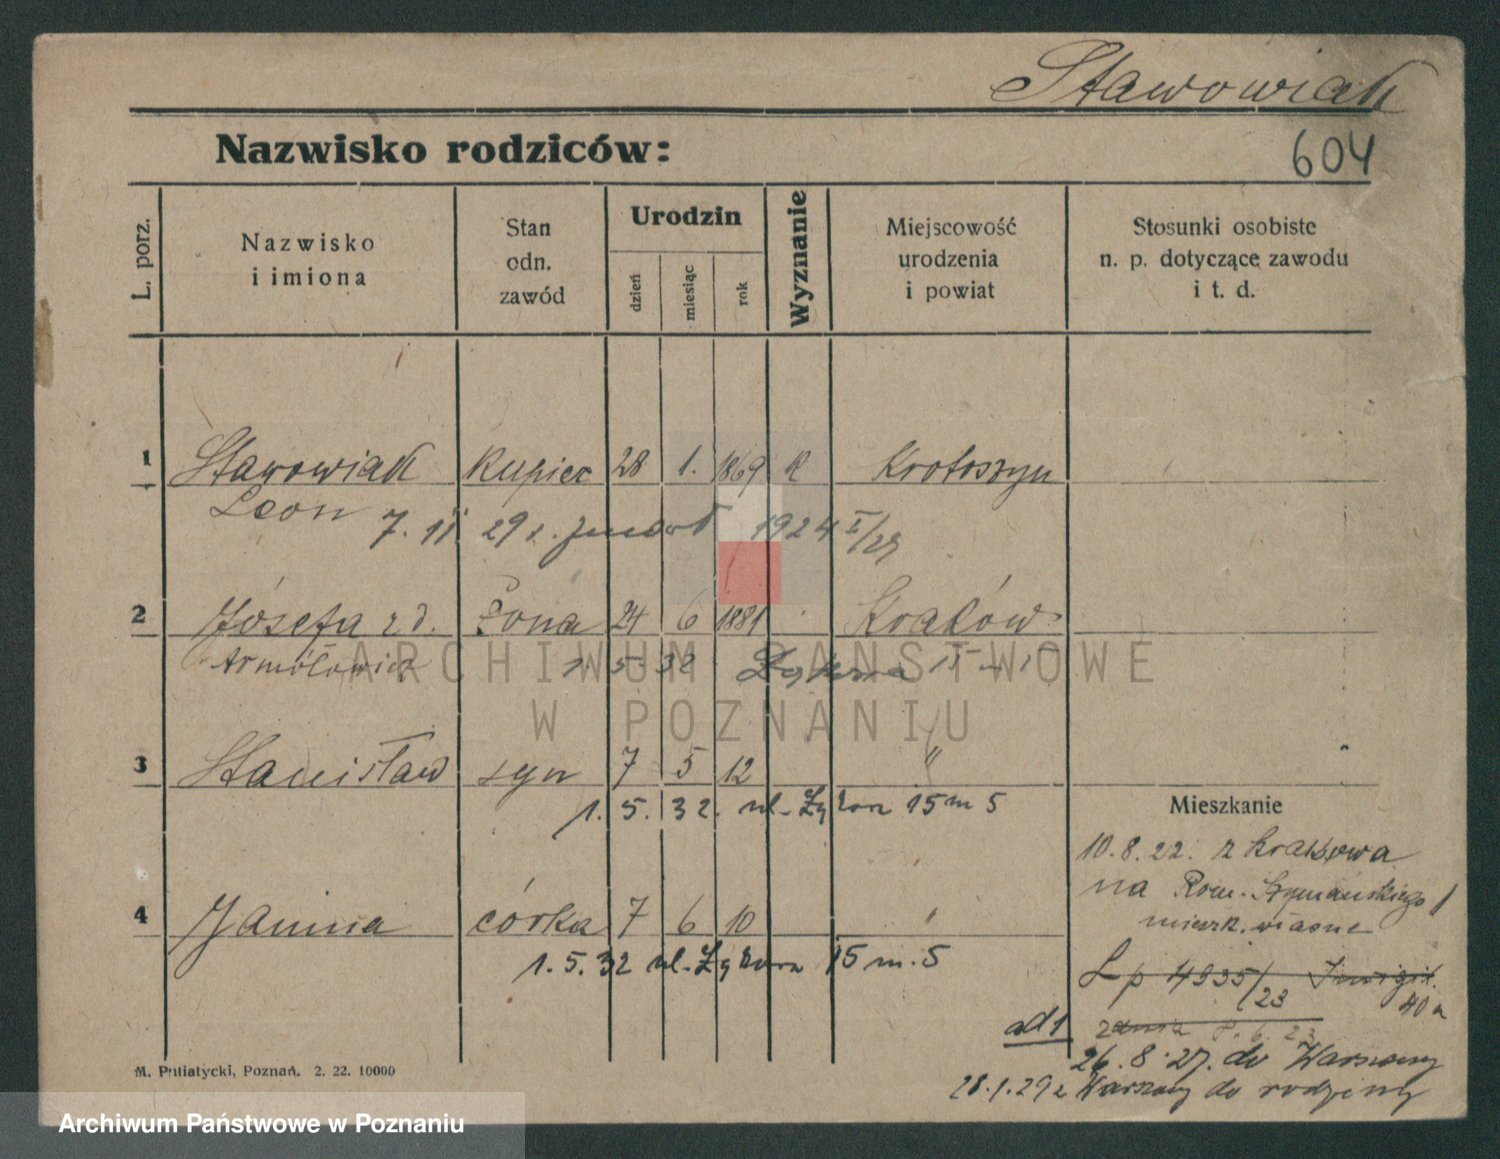 Stawowiak
Nazwisko rodziców:
604
L. porz.
Nazwisko
i imiona
Stan
odn.
zawód
Urodzin
dzień
miesiąc
rok
Wyznanie
Miejscowość
urodzenia
i powiat
Stosunki osobiste
n. p. dotyczące zawodu
i t. d.
1 Stawowiak Kupiec 28 1. 1869 R Krotoszyn
Leon
7. II 29 1924 I/29
2 Józefa z d. żona 24 6 1881 Kraków
Armółowicz 1. 5. 32 15
ARCHIWUM PAŃSTWOWE
W POZNANIU
3 Stanisław syn 7 5 12 "
1. 5. 32. ul. 15 m 5
Mieszkanie
10.8.22. z Krakowa
na Rom. Szymańskiego 1
mieszk. własne
4 Janina córka 7 6 10 "
1. 5. 32 ul. 15 m. 5
Lp 4935/23
40a
ad 1
26.8.27. do Warszawy
28.1.29 z Warszawy do rodziny
M. Putiatycki, Poznań. 2. 22. 10000
Archiwum Państwowe w Poznaniu